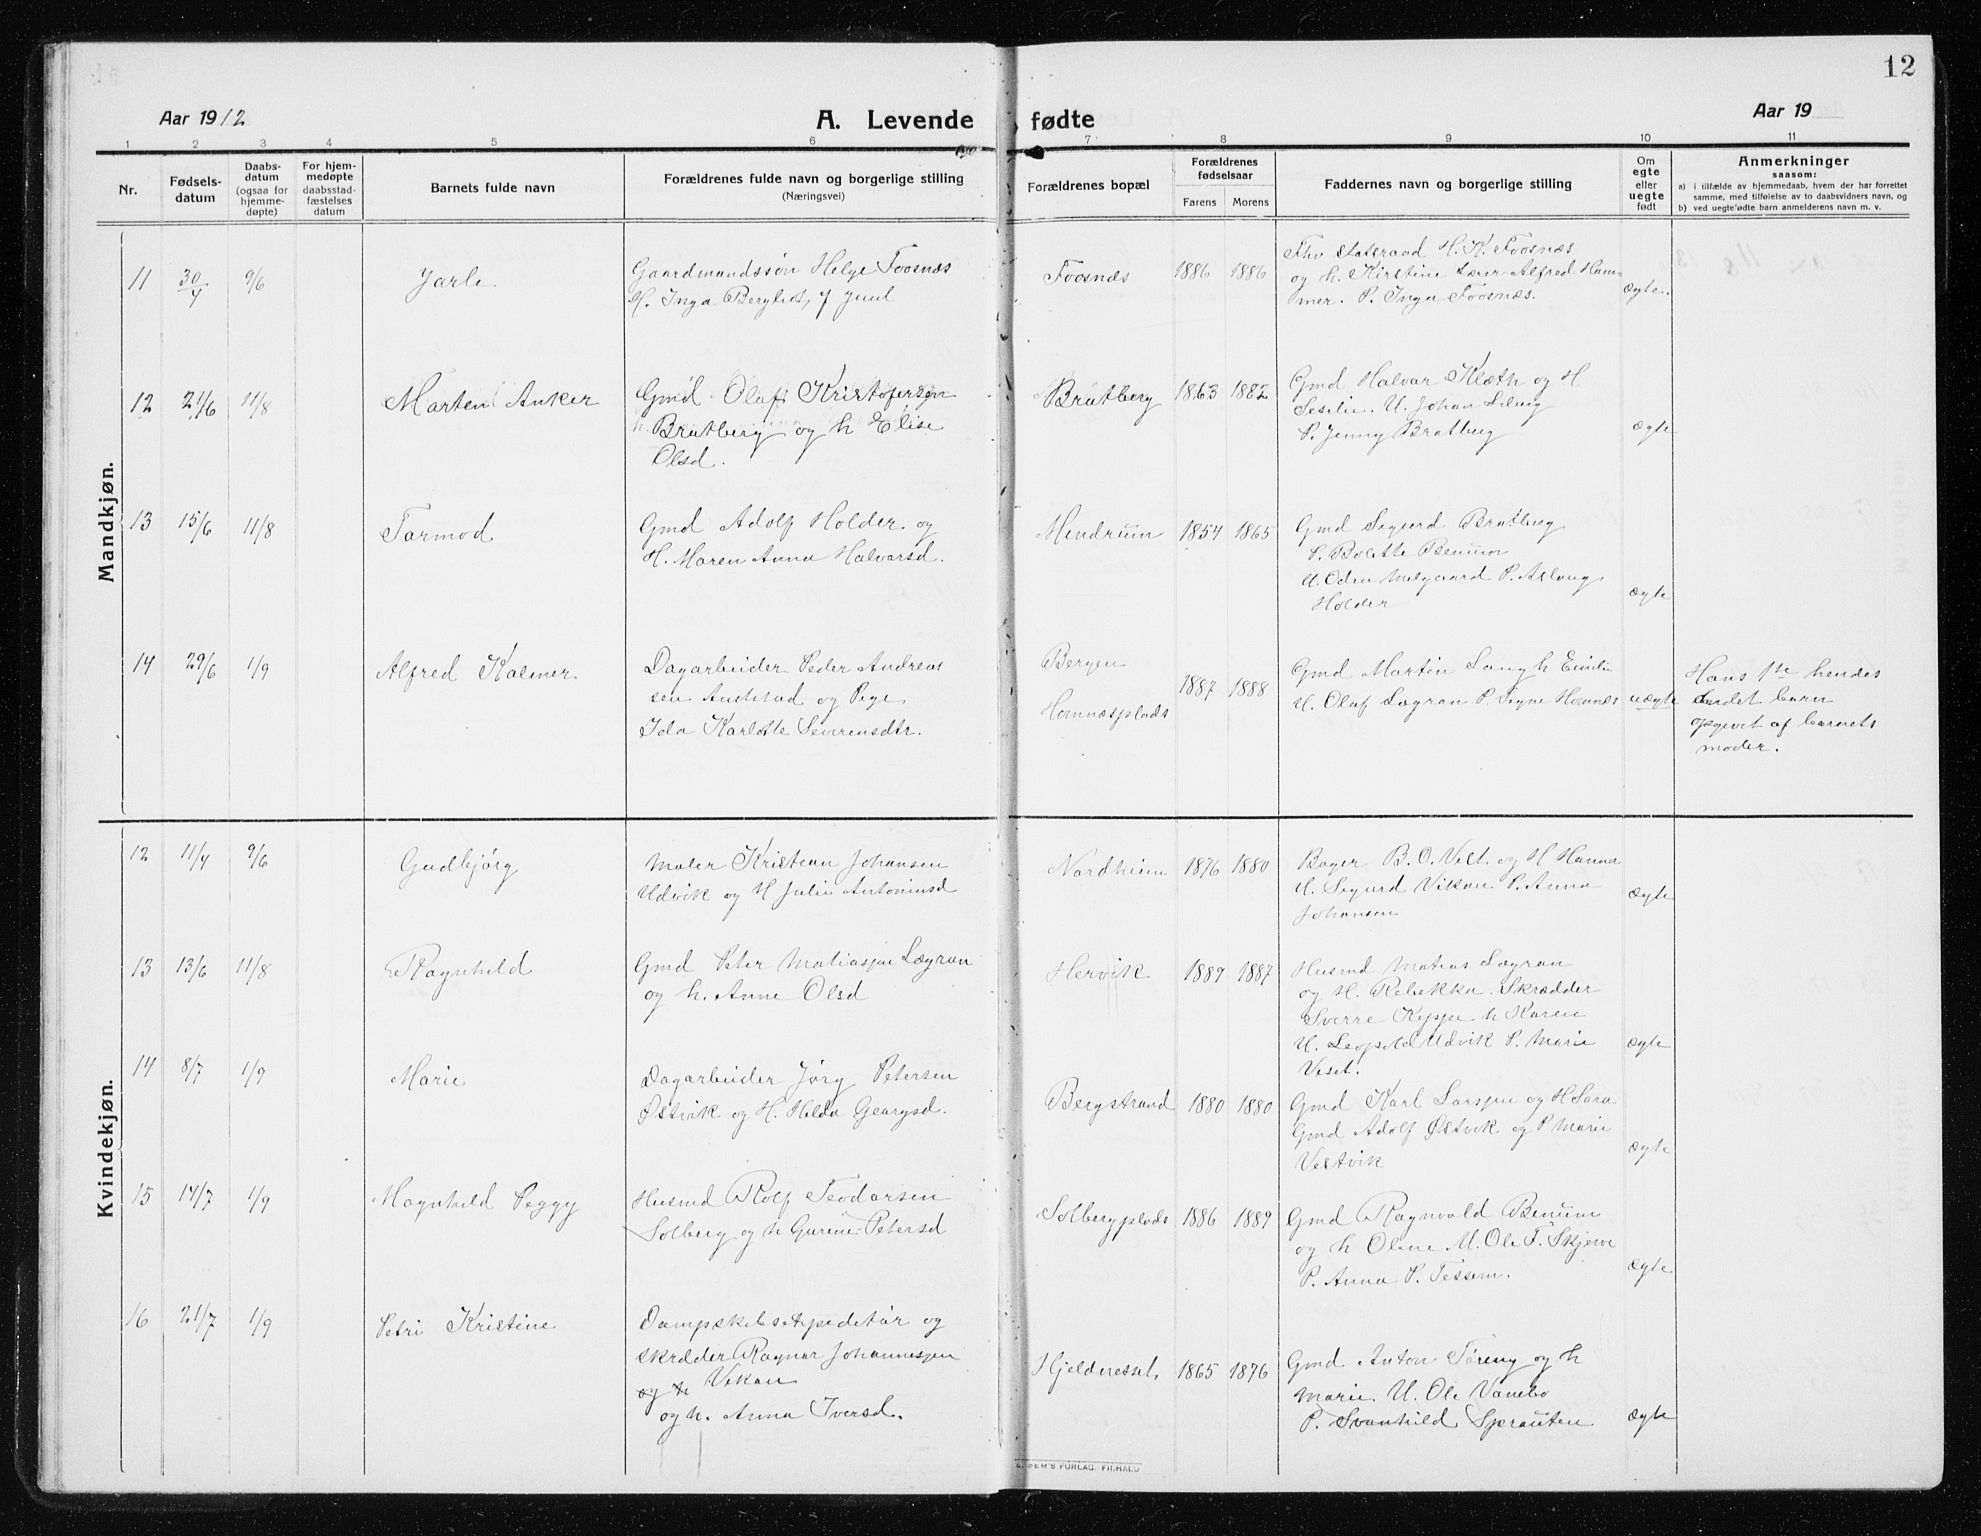 12
Aar 1912
A. Levende fødte
Aar 19
1 2 3 4 5 6 7 8 9 10 11
Nr.
Fødsels-
datum
Daabs-
datum
(ogsaa for
hjemme-
døpte)
For hjem-
medøpte
daabsstad-
fæstelses
datum
Barnets fulde navn
Forældrenes fulde navn og borgerlige stilling
(Næringsvei)
Forældrenes bopæl
Forældrenes
fødselsaar
Farens Morens
Faddernes navn og borgerlige stilling
Om
egte
eller
uegte
født
Anmerkninger
saasom:
a) i tilfælde av hjemmedaab, hvem der har forrettet
samme, med tilføielse av to daabsvidners navn, og
b) ved uegte fødte barn anmelderens navn m. v.
Mandkjøn.
11 30/4 9/6 Jarle
Gaardmandssøn Helge Foosnæs
H. Inga Bergliot, f Juul
Foosnæs 1886 1886
Fhv Statsraad H. K. Foosnæs
og h. Kirstine Lærer Alfred Ham-
mer. P. Inga Foosnæs.
ægte.
12 21/6 11/8 Marten Anker
Gmd Olaf Kristofersen
Bratberg og h Elise
Olsd.
Bratberg 1863 1882
Gmd Halvar Klæth og H
Seselie. U. Johan
P. Jenny Bratberg
ægte
13 15/6 11/8 Tarmod
Gmd Adolf Holder og
H. Maren Anna Halvarsd.
Hendrum 1854 1865
Gmd Sigurd Bratberg
P. Bolette Benum
U. Oden Melgaard P. Aslaug
Holder
ægte
14 29/6 1/9 Alfred Kalmer
Dagarbeider Peder Andreas
sen Aunstad og Pige
Ida Karlotte Severensdtr.
Bergen
Homnæsplads
1887 1888
Gmd Martin Lang h Emilie
U. Olaf Lægran P. Signe Homnæs
uægte
Hans 1ste hendes
andet barn
opgivet af barnets
moder.
Kvindekjøn.
12 11/4 9/6 Gudbjørg
Maler Kristian Johansen
Udvik og H Julie Antoniusd
Nordheim 1876 1880
Bager B. O. Velt og H Hanna
U. Sigurd Vikan P. Anna
Johansen
ægte
13 13/6 11/8 Ragnhild
Gmd Peter Matiasjen Lægran
og h. Anne Olsd
Hervik 1889 1887
Husmd Matias Lægran
og H. Rebekka. Skrædder
Sverre Kippe h Karen
U. Leopold Udvik P. Marie
Veset.
ægte
14 8/7 1/9 Marie
Dagarbeider Jørg Petersen
Østvik og H. Hilda Georgsd.
Bergstrand 1880 1880
Gmd Karl Larsjen og H Sara
Gmd Adolf Østvik og P Marie
Vestvik
ægte
15 14/7 1/9 Magnhild Peggy
Husmd Rolf Teodorsen
Solberg og h Gurine Petersd
Solbergplads 1886 1889
Gmd Ragnvald Benum
og h Oline U. Ole F. Skjerve
P. Anna P. Tessem.
ægte
16 21/7 1/9 Petri Kristine
Dampskibsexpeditør og
skrædder Ragnar Johannesjen
og h Vikan
og h. Anna Iversd.
Hjeldnesset, 1865 1876
Gmd Anton Tøreng og h
Marie. U. Ole Vanebo
P. Svanhild Sprauten
ægte
SEM'S FORLAG. FR.HALD